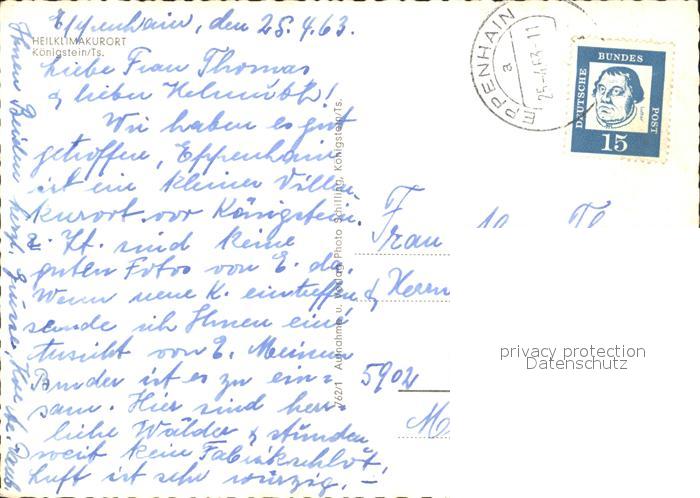 Eppenhain, den 25.4.63.
HEILKLIMAKURORT
Königstein/Ts.
Liebe Frau Thomas
& lieber Helmuth!
Wir haben es gut
getroffen, Eppenhain
ist ein kleiner Villen
kurort vor Königstein.
z. Zt. sind keine
guten Fotos von E. da.
Wenn neue K. eintreffen
sende ich Ihnen eine
Ansicht von E. Meinem
Bruder ist es zu ein=
sam. Hier sind herr=
liche Wälder & stunden
weit kein Fabrikschlot,
Luft ist sehr würzig. —
Ihnen Beiden herzl. Grüsse,
762/1 Aufnahme u. Verlag Photo Schilling, Königstein/Ts.
EPPENHAIN
a
25-4.63-11
DEUTSCHE
BUNDES
POST
15
Frau
& Herrn
5902
privacy protection
Datenschutz